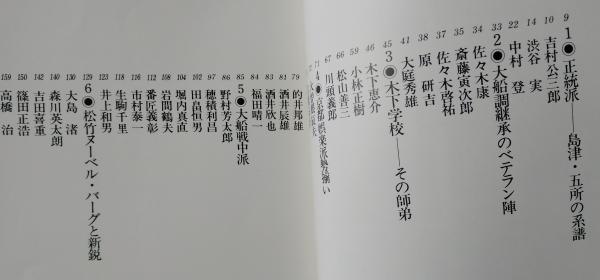 1◉正統派——島津・五所の系譜 9
吉村公三郎 10
渋谷 実 14
中村 登 22
2◉大船調継承のベテラン陣 33
佐々木康 34
斎藤寅次郎 35
佐々木啓祐 37
原 研吉 38
大庭秀雄 41
3◉木下学校——その師弟 45
木下恵介 46
小林正樹 59
松山善三 66
川頭義郎 67
4◉ 71
的井邦雄 79
酒井辰雄 81
酒井欣也 83
福田晴一 84
5◉大船戦中派 85
野村芳太郎 86
穂積利昌 97
田畠恒男 102
堀内真直 104
岩間鶴夫 108
番匠義彰 112
市村泰一 116
生駒千里 118
井上和男 123
6◉松竹ヌーベル・バーグと新鋭 129
大島 渚 130
森川英太朗 140
吉田喜重 142
篠田正浩 150
高橋 治 159